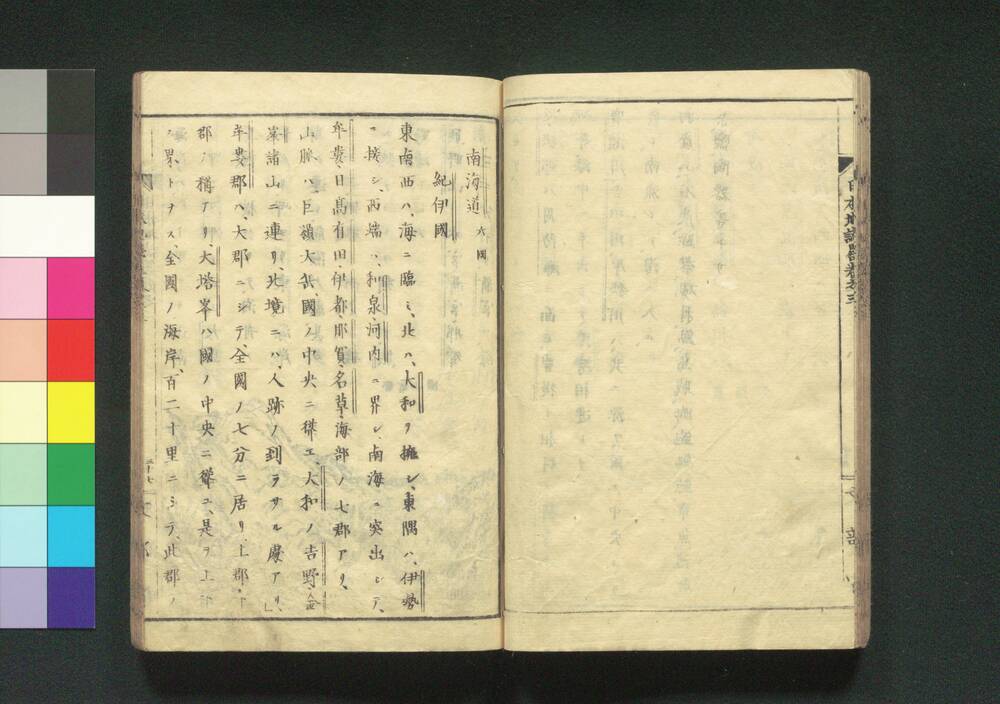 日本地誌略巻之三
南海道 六國
紀伊國
東南西ハ、海ニ臨ミ、北ハ、大和ヲ擁シ、東隅ハ、伊勢
ニ接シ、西端ハ、和泉、河内ニ界シ、南海ニ突出シテ、
牟婁、日髙、有田、伊都、那賀、名草、海部ノ七郡アリ、
山脈ハ、巨嶺大岳國ノ中央ニ聳エ、大和ノ吉野、金
峯諸山ニ連リ、北境ニハ、人跡ノ到ラサル處アリ、
牟婁郡ハ、大郡ニシテ、全國ノ七分ニ居リ、上郡、下
郡ノ稱アリ、大塔峯ハ國ノ中央ニ聳エ、是ヲ上下
ノ界トナス、全國ノ海岸、百二十里ニシテ、此郡ノ